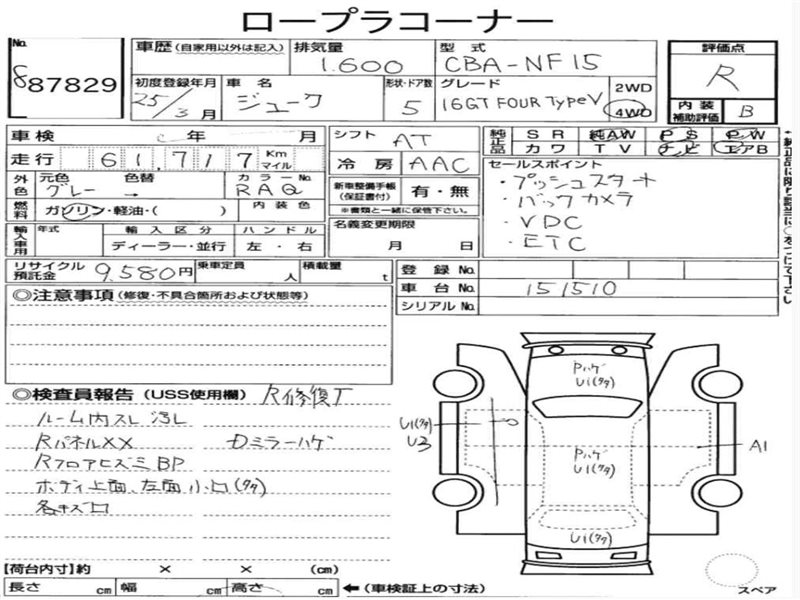 ロープラコーナー
No. 887829
車歴 (自家用以外は記入) 排気量 1.600 型式 CBA-NF15 評価点 R
初度登録年月 25/3月 車名 ジューク 形状・ドア数 5 グレード 16GT FOUR TypeV 2WD 4WD 内装補助評価 B
車検 年 月 シフト AT 純正品 SR 純AW PS PW
カワ TV ナビ エアB
走行 61,717 Km マイル 冷房 AAC
外色 元色 グレー 色替 → カラーNo. RAQ 新車整備手帳(保証書付) 有・無
※書類と一緒に保管下さい。
燃料 ガソリン・軽油・( ) 内装色
セールスポイント
・プッシュスタート
・バックカメラ
・VDC
・ETC
輸入車用 年式 輸入区分 ディーラー・並行 ハンドル 左・右 名義変更期限 月 日
リサイクル預託金 9.580円 乗車定員 人 積載量 t
登録No.
車台No. 151510
シリアルNo.
◎注意事項 (修復・不具合箇所および状態等)
◎検査員報告 (USS使用欄) R修復歴
ルーム内スレ汚レ
Rパネル××
Dミラーハゲ
RフロアヒズミBP
ボディ上面、左面小凹(タタ)
各キズ凹
Pハゲ
U1(タタ)
U1(タタ)
U3
Pハゲ
U1(タタ)
A1
U1(タタ)
【荷台内寸】約 × × (cm)
長さ cm 幅 cm 高さ cm ←(車検証上の寸法)
スペア